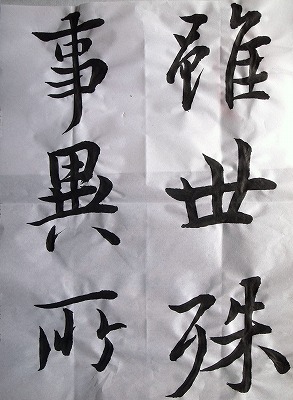 雖世殊
事異所